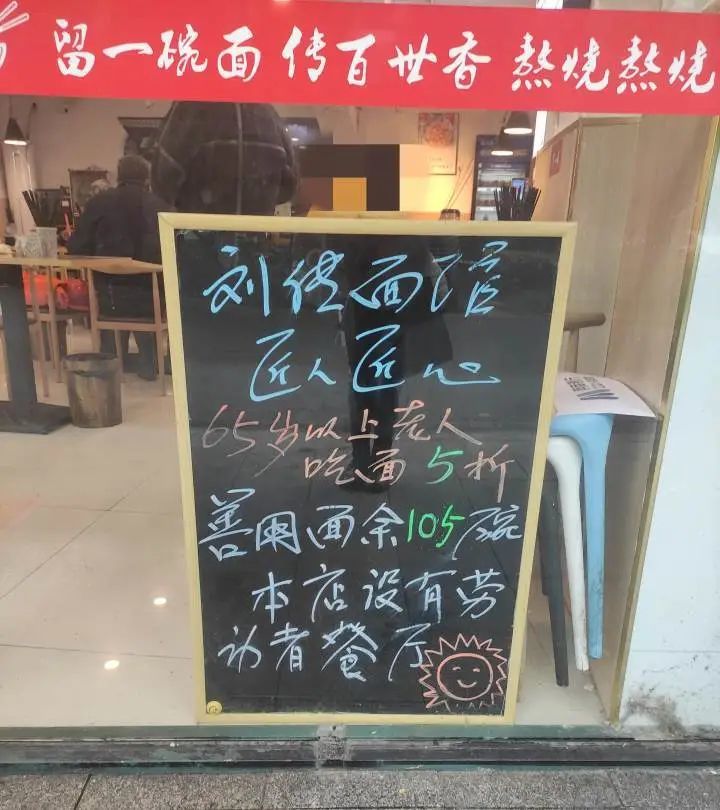 留一碗面 传百世香 熬烧熬烧
刘待面馆
匠人匠心
65岁以上老人
吃面5折
善用面余105碗
本店设有劳
动者餐厅